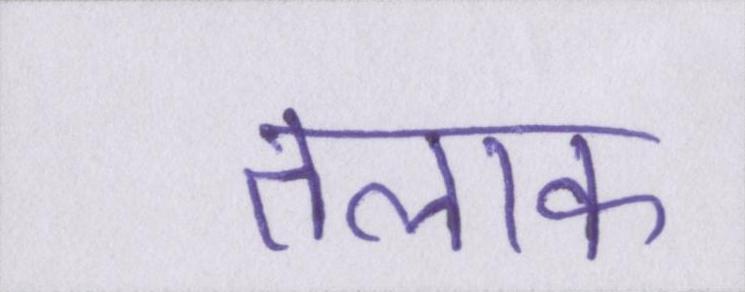 तलाक